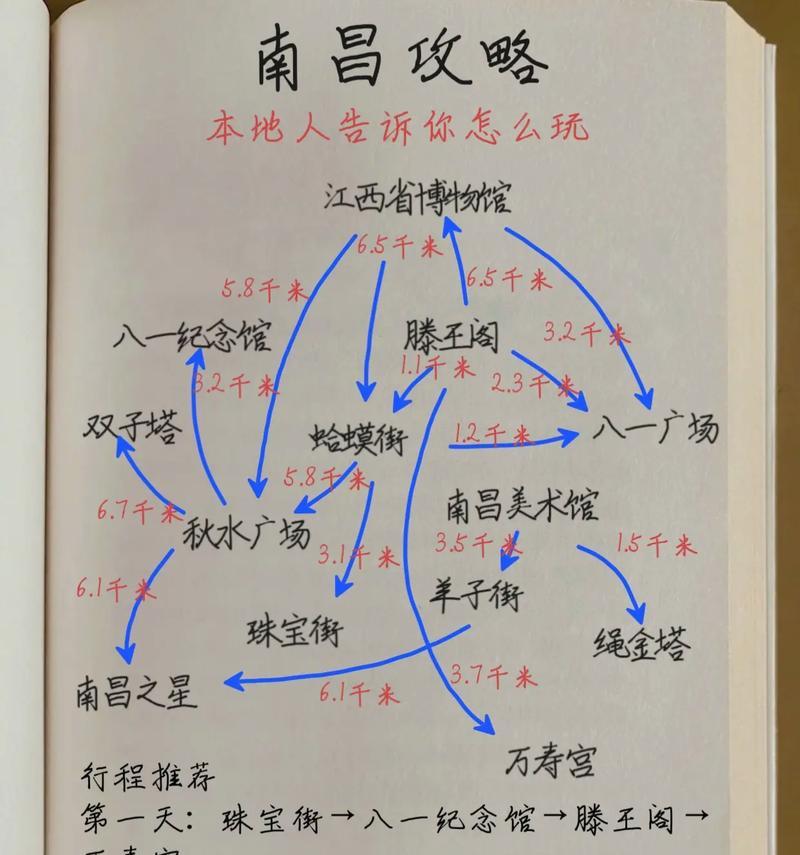 南昌攻略
本地人告诉你怎么玩
江西省博物馆
6.5千米
5.8千米
6.5千米
八一纪念馆
滕王阁
3.2千米
1.1千米
3.2千米
2.3千米
双子塔
蛤蟆街
1.2千米
八一广场
5.8千米
6.7千米
南昌美术馆
秋水广场
3.1千米
3.5千米
1.5千米
6.1千米
羊子街
珠宝街
绳金塔
南昌之星
6.1千米
3.7千米
万寿宫
行程推荐
第一天：珠宝街→八一纪念馆→滕王阁→